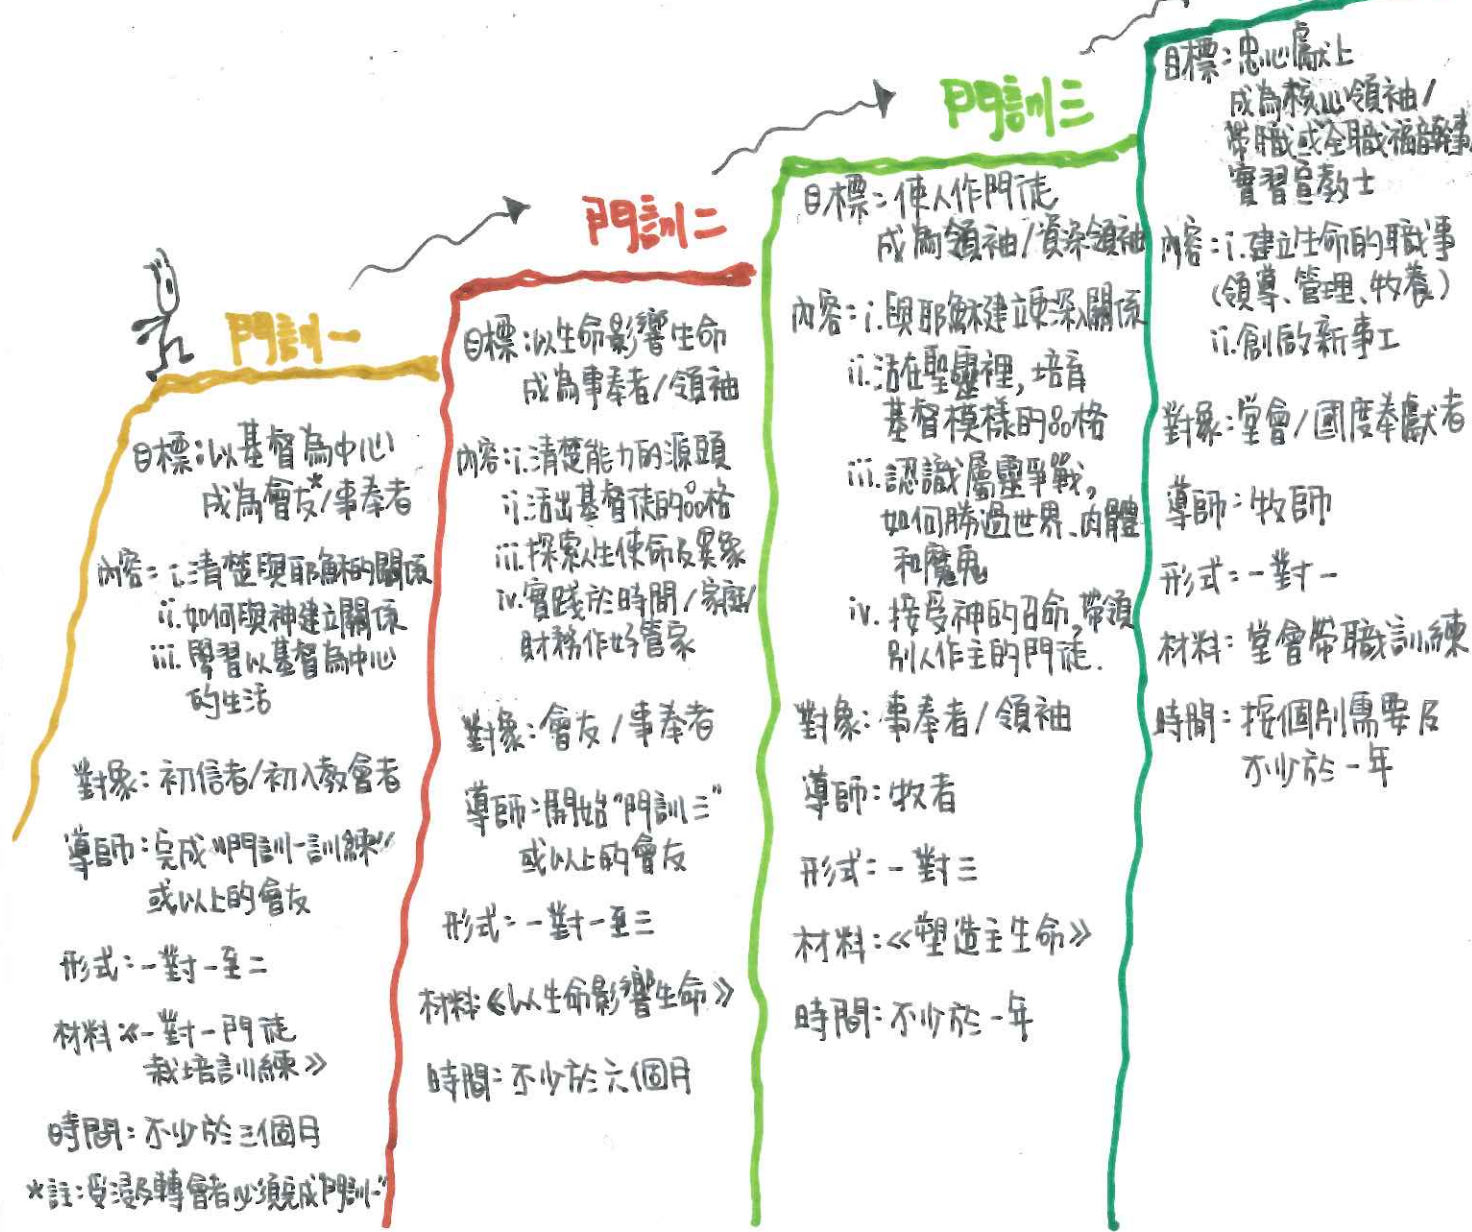 門訓一
目標：以基督為中心
成為會友*/事奉者
內容：i.清楚與耶穌的關係
ii.如何與神建立關係
iii.學習以基督為中心
的生活
對象：初信者/初入教會者
導師：完成"門訓一訓練"
或以上的會友
形式：一對一至二
材料：《一對一門徒
栽培訓練》
時間：不少於三個月
*註：受浸及轉會者必須完成"門訓一"
門訓二
目標：以生命影響生命
成為事奉者/領袖
內容：i.清楚能力的源頭
ii.活出基督徒的品格
iii.探索人生使命及異象
iv.實踐於時間/家庭/
財務作好管家
對象：會友/事奉者
導師：開始"門訓三"
或以上的會友
形式：一對一至三
材料：《以生命影響生命》
時間：不少於六個月
門訓三
目標：使人作門徒
成為領袖/資深領袖
內容：i.與耶穌建立更深關係
ii.活在聖靈裡，培育
基督模樣的品格
iii.認識屬靈爭戰，
如何勝過世界、肉體
和魔鬼
iv.接受神的召命，帶領
別人作主的門徒.
對象：事奉者/領袖
導師：牧者
形式：一對三
材料：《塑造主生命》
時間：不少於一年
目標：忠心獻上
成為核心領袖/
帶職或全職福音幹事/
實習宣教士
內容：i.建立生命的職事
(領導、管理、牧養)
ii.創啟新事工
對象：堂會/國度奉獻者
導師：牧師
形式：一對一
材料：堂會帶職訓練
時間：按個別需要及
不少於一年